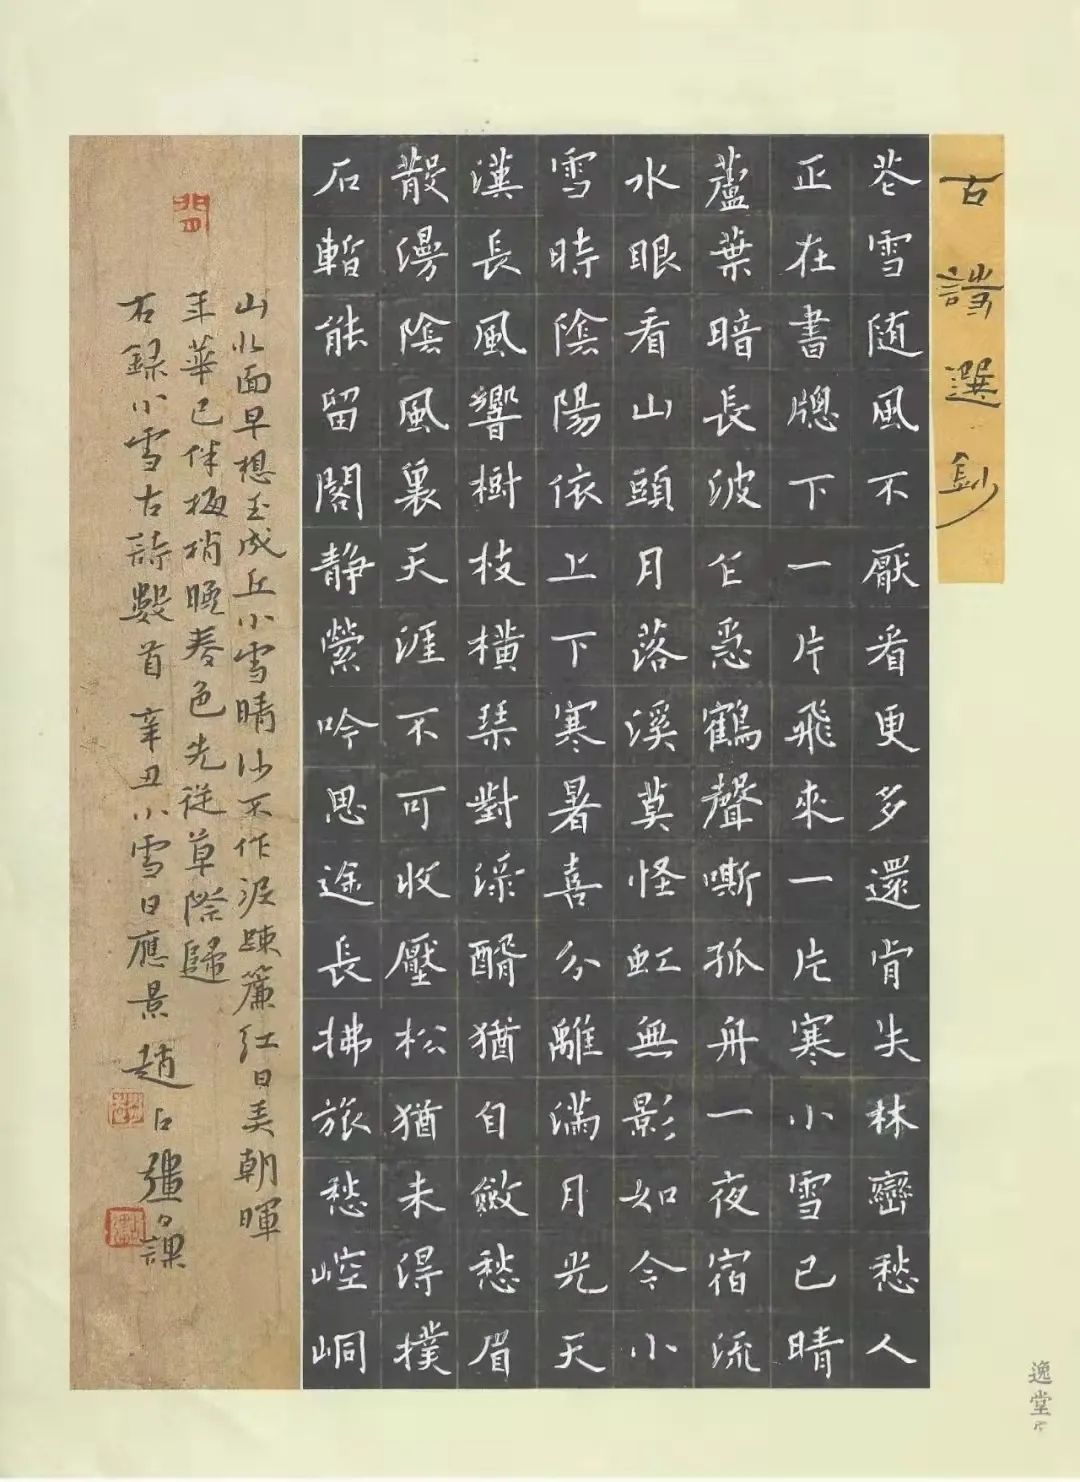 古詩選鈔
花雪随風不厭看更多還肯失林巒愁人
正在書牕下一片飛來一片寒小雪已晴
蘆葉暗長波乍急鶴聲嘶孤舟一夜宿流
水眼看山頭月落溪莫怪虹無影如今小
雪時陰陽依上下寒暑喜分離滿月光天
漢長風響樹枝橫琴對淥醑猶自斂愁眉
散漫陰風裏天涯不可收壓松猶未得撲
石暫能留閣静縈吟思途長拂旅愁崆峒
山北面早想玉成丘小雪晴沙不作泥疎簾紅日美朝暉
年華已伴梅梢晚春色先從草際歸
右録小雪古詩數首 辛丑小雪日應景 趙占彊日課
逸堂